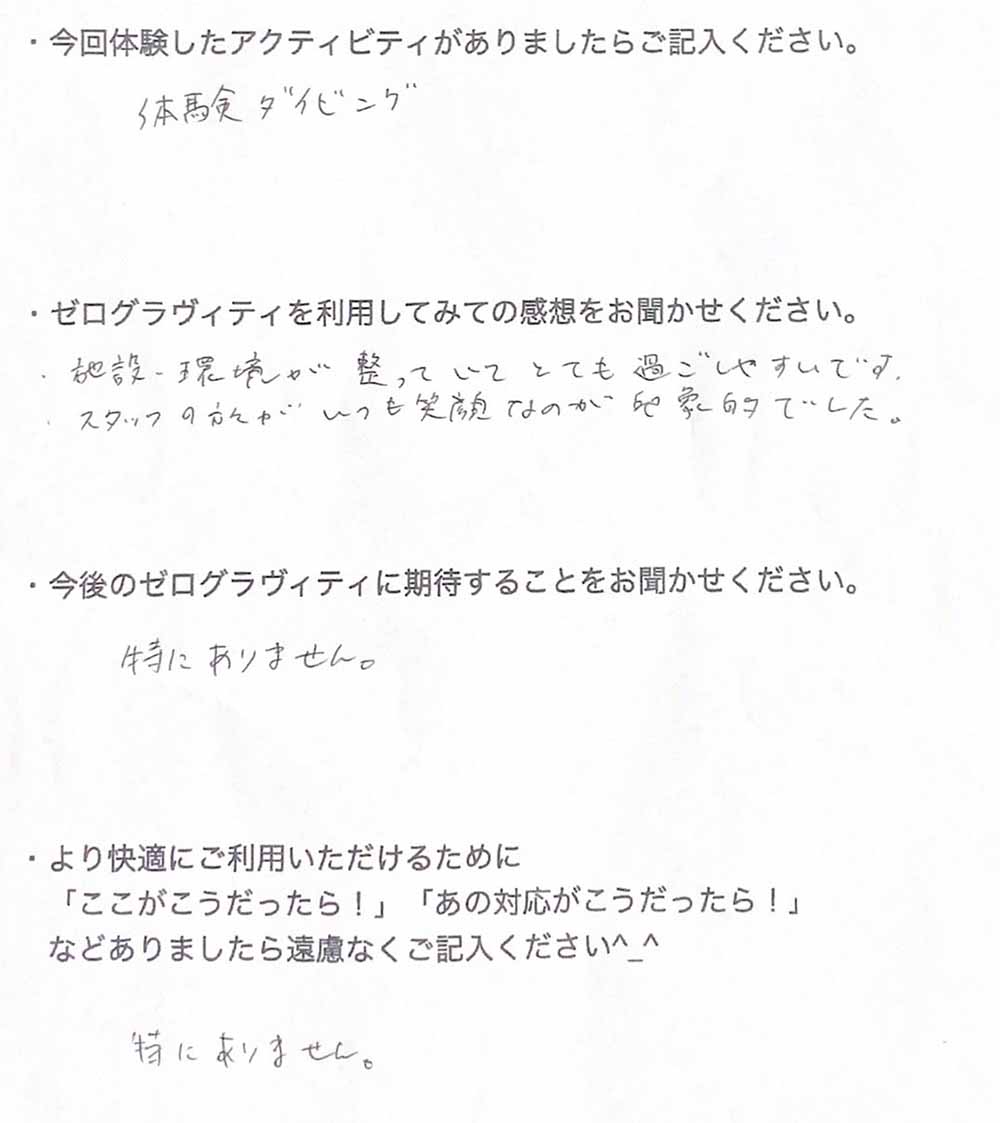 ・今回体験したアクティビティがありましたらご記入ください。
体験ダイビング
・ゼログラヴィティを利用してみての感想をお聞かせください。
・施設・環境が整っていてとても過ごしやすいです.
・スタッフの方々がいつも笑顔なのが印象的でした。
・今後のゼログラヴィティに期待することをお聞かせください。
特にありません。
・より快適にご利用いただけるために
「ここがこうだったら！」「あの対応がこうだったら！」
などありましたら遠慮なくご記入ください^_^
特にありません。